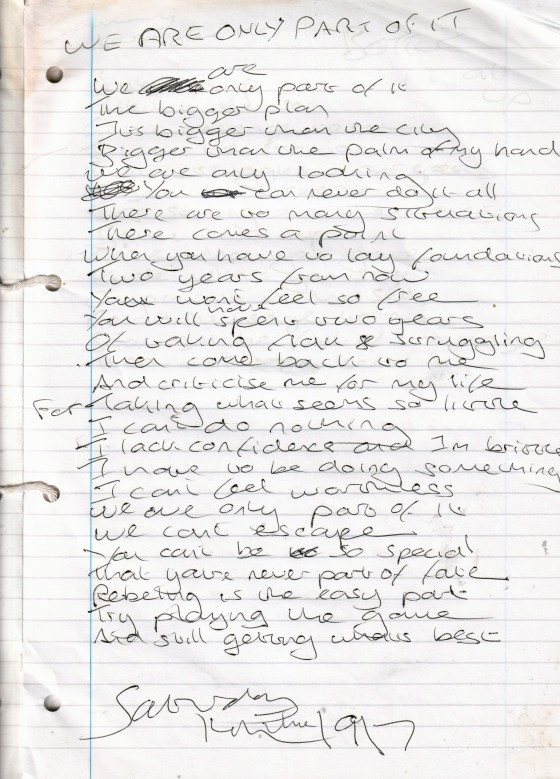 WE ARE ONLY PART OF IT
are
We only part of it
The bigger plan
Its bigger than the city
Bigger than the palm of my hand
We are only looking
You can never do it all
There are so many situations
There comes a point
When you have to lay foundations
Two years from now
You wont feel so free
have
You will spent two years
Of taking flak & struggling
Then come back to me
And criticise me for my life
For taking what seems so little
I cant do nothing
I lack confidence and Im brittle
I have to be doing something
I cant feel worthless
We are only part of it
We cant escape
You cant be so special
That youre never part of fate
Rebelling is the easy part
Try playing the game
And still getting whats best
Saturday